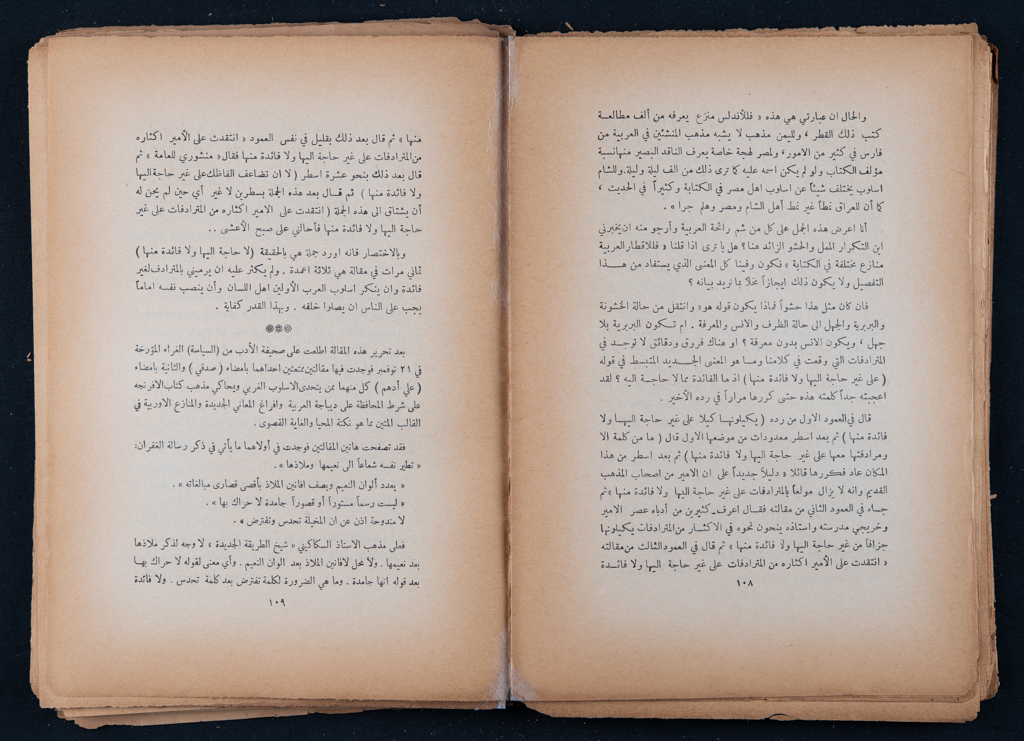 والحال ان عبارتي هي هذه « فللأندلس منزع يعرفه من ألف مطالعـة
كتب ذلك القطر ، ولليمن مذهب لا يشبه مذهب المنشئين في العربية من
فارس في كثير من الامور، ولمصر لهجة خاصة يعرف الناقد البصير منهانسبة
مؤلف الكتاب ولو لم يكن اسمه عليه كما ترى ذلك من الف ليلة وليلة.وللشام
اسلوب يختلف شيئاً عن اسلوب اهل مصر في الكتابة وكثيراً في الحديث ،
كما أن للعراق نمطاً غير نمط أهل الشام ومصر وهلم جرا » .
أنا اعرض هذه الجمل على كل من شم رائحة العربية وأرجو منه ان يخبرني
اين التكرار الممل والحشو الزائد هنا؟ هل يا ترى اذا قلنا « فللاقطار العربية
منازع مختلفة في الكتابة » نكون وفينا كل المعنى الذي يستفاد من هـــذا
التفصيل ولا يكون ذلك ايجازاً مخلاً بما نريد بيانه ؟
فان كان مثل هذا حشواً فماذا يكون قوله هو« وانتقل من حالة الخشونة
والبربرية والجهل الى حالة الظرف والانس والمعرفة . ام تـكون البربرية بلا
جهل ، ويكون الانس بدون معرفة ؟ او هناك فروق ودقائق لا توجـد في
المترادفات التي وقعت في كلامنا ومـا هو المعنى الجـديد المتبسط في قوله
( على غير حاجة اليها ولا فائدة منها ) اذ ما الفائدة مما لا حاجـة اليه ؟ لقد
اعجبته جداً كلمته هذه حتى كررها مراراً في رده الأخير .
قال في العمود الاول من رده ( يكيلونهـا كيلا على غير حاجة اليهـا ولا
فائدة منها ) ثم بعد اسطر معدودات من موضعها الاول قال ( ما من كلمة الا
ومرادفتها معها على غير حاجة اليها ولا فائدة منها ) ثم بعد اسطر من هذا
المكان عاد فكررها قائلا « دليلاً جديداً على ان الامير من اصحاب المذهب
القديم وانه لا يزال مولعاً بالمترادفات على غير حاجة اليها ولا فائدة منها »ثم
جـاء في العمود الثاني من مقالته فقـال اعرف كثيرين من أدباء عصر الامير
وخريجي مدرسته واستاذه ينحون نحوه في الاكثـار من المترادفات يكيلونها
جزافاً من غير حاجة اليها ولا فائدة منها » ثم قال في العمود الثالث من مقالته
« انتقدت على الأمير اكثاره من المترادفات على غير حاجة اليها ولا فائـدة
١٠٨
منها » ثم قال بعد ذلك بقليل في نفس العمود « انتقدت على الأمير اكثاره
من المترادفات على غير حاجة اليها ولا فائدة منها فقال« منشوري للعامة » ثم
قال بعد ذلك بنحو عشرة اسطر ( لا ان تضاعف الفاظك على غير حاجة اليها
ولا فائدة منها ) ثم قـال بعد هذه الجملة بسطرين لا غير أي حين لم يحن له
أن يشتاق الى هذه الجملة ( انتقدت على الامير اكثاره من المترادفات على غير
حاجة اليها ولا فائدة منها فأحالني على صبح الأعشى ..
وبالاختصار فانه اورد جملة هي بالحقيقة (لا حاجة اليها ولا فائدة منها )
ثماني مرات في مقالة هي ثلاثة اعمدة . ولم يكثر عليه ان يرميني بالمترادف لغير
فائدة وان ينكر اسلوب العرب الأولين اهل اللسان وأن ينصب نفسه اماماً
يجب على الناس ان يصلوا خلفه . وبهذا القدر كفاية .
بعد تحرير هذه المقالة اطلعت على صحيفة الأدب من (السياسة) الغراء المؤرخة
في ٢١ نوفمبر فوجدت فيها مقالتين ممتعتين احداهما بامضاء ( صدقي ) والثانية بامضاء
( علي أدهم ) كل منهما ممن يتحدى الاسلوب الغربي ويحاكي مذهب كتاب الافرنجه
على شرط المحافظة على ديباجة العربية وافراغ المعاني الجديدة والمنازع الاوربية في
القالب المتين مما هو نكتة المحيا والغاية القصوى .
فقد تصفحت هاتين المقالتين فوجدت في أولاهما ما يأتي في ذكر رسالة الغفران:
« تطير نفسه شعاعاً الى نعيمها وملاذها » .
« يعدد ألوان النعيم ويصف افانين الملاذ بأقصى قصارى مبالغاته » .
« ليست رسماً مستوراً أو قصوراً جامدة لا حراك بها » .
لا مندوحة اذن عن ان المخيلة تحدس وتفترض » .
فعلى مذهب الاستاذ السكاكيني « شيخ الطريقة الجديدة » لا وجه لذكر ملاذها
بعد نعيمها . ولا محل لافانين الملاذ بعد الوان النعيم . وأي معنى لقوله لا حراك بهـا
بعد قوله انها جامدة . وما هي الضرورة لكلمة تفترض بعد كلمة تحدس . ولا فائدة
١٠٩